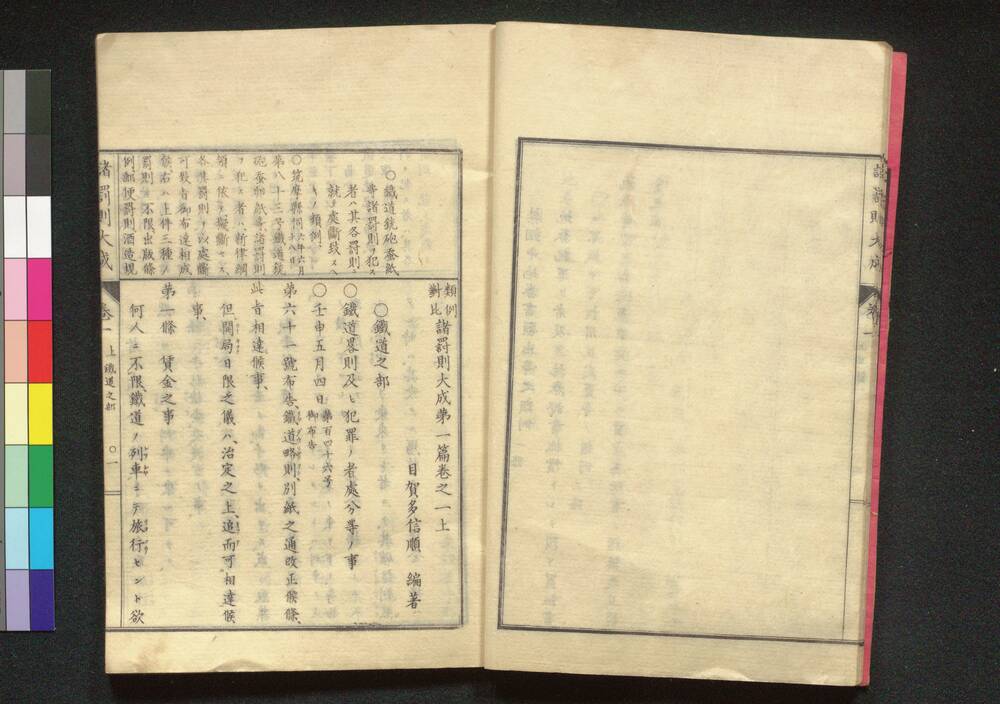 諸罰則大成
卷一
類例
對比
諸罰則大成第一篇卷之一上
目賀多信順 編著
〇鐵道之部
〇鐵道畧則及ヒ犯罪ノ者處分等ノ事
〇壬申五月四日 第百四十六号
御布告
第六十一號布告、鐵道略則、別紙之通改正候條、
此旨相達候事、
但開局日限之儀ハ、治定之上、追而可相達候
事、
第一條 賃金之事
何人ニ不限、鐵道ノ列車ニテ旅行セント欲
〇鐵道銃砲蚕紙
等諸罰則ヲ犯ス
者ハ其各罰則ニ
就テ處斷致スヘ
キノ類例
〇筑摩縣伺六年六月
第八十三号鐵道銃
砲蚕細紙等諸罰則
ヲ犯ス者ハ、新律綱
領ニ依テ擬斷セス、
各其罰則ヲ以處斷
可致旨御布達相成
候、右ハ上件三種ノ
罰則ニ不限出版條
例郵便罰則酒造規
諸罰則大成
卷一
上 鐵道之部
〇一